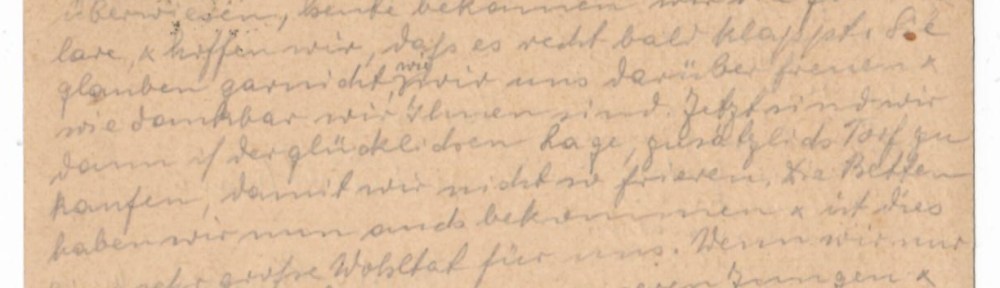 überwiesen, heute bekommen wir
lare, & hoffen wir, dass es recht bald klappt. Sie
glauben garnicht, wie wir uns darüber freuen &
wie dankbar wir Ihnen sind. Jetzt sind wir
dann i/ der glücklichen Lage, zusätzlich Torf zu
kaufen, damit wir nicht so frieren. Die Betten
haben wir nun auch bekommen & ist dies
sehr große Wohltat für uns. Wenn wir nur
Jungen &